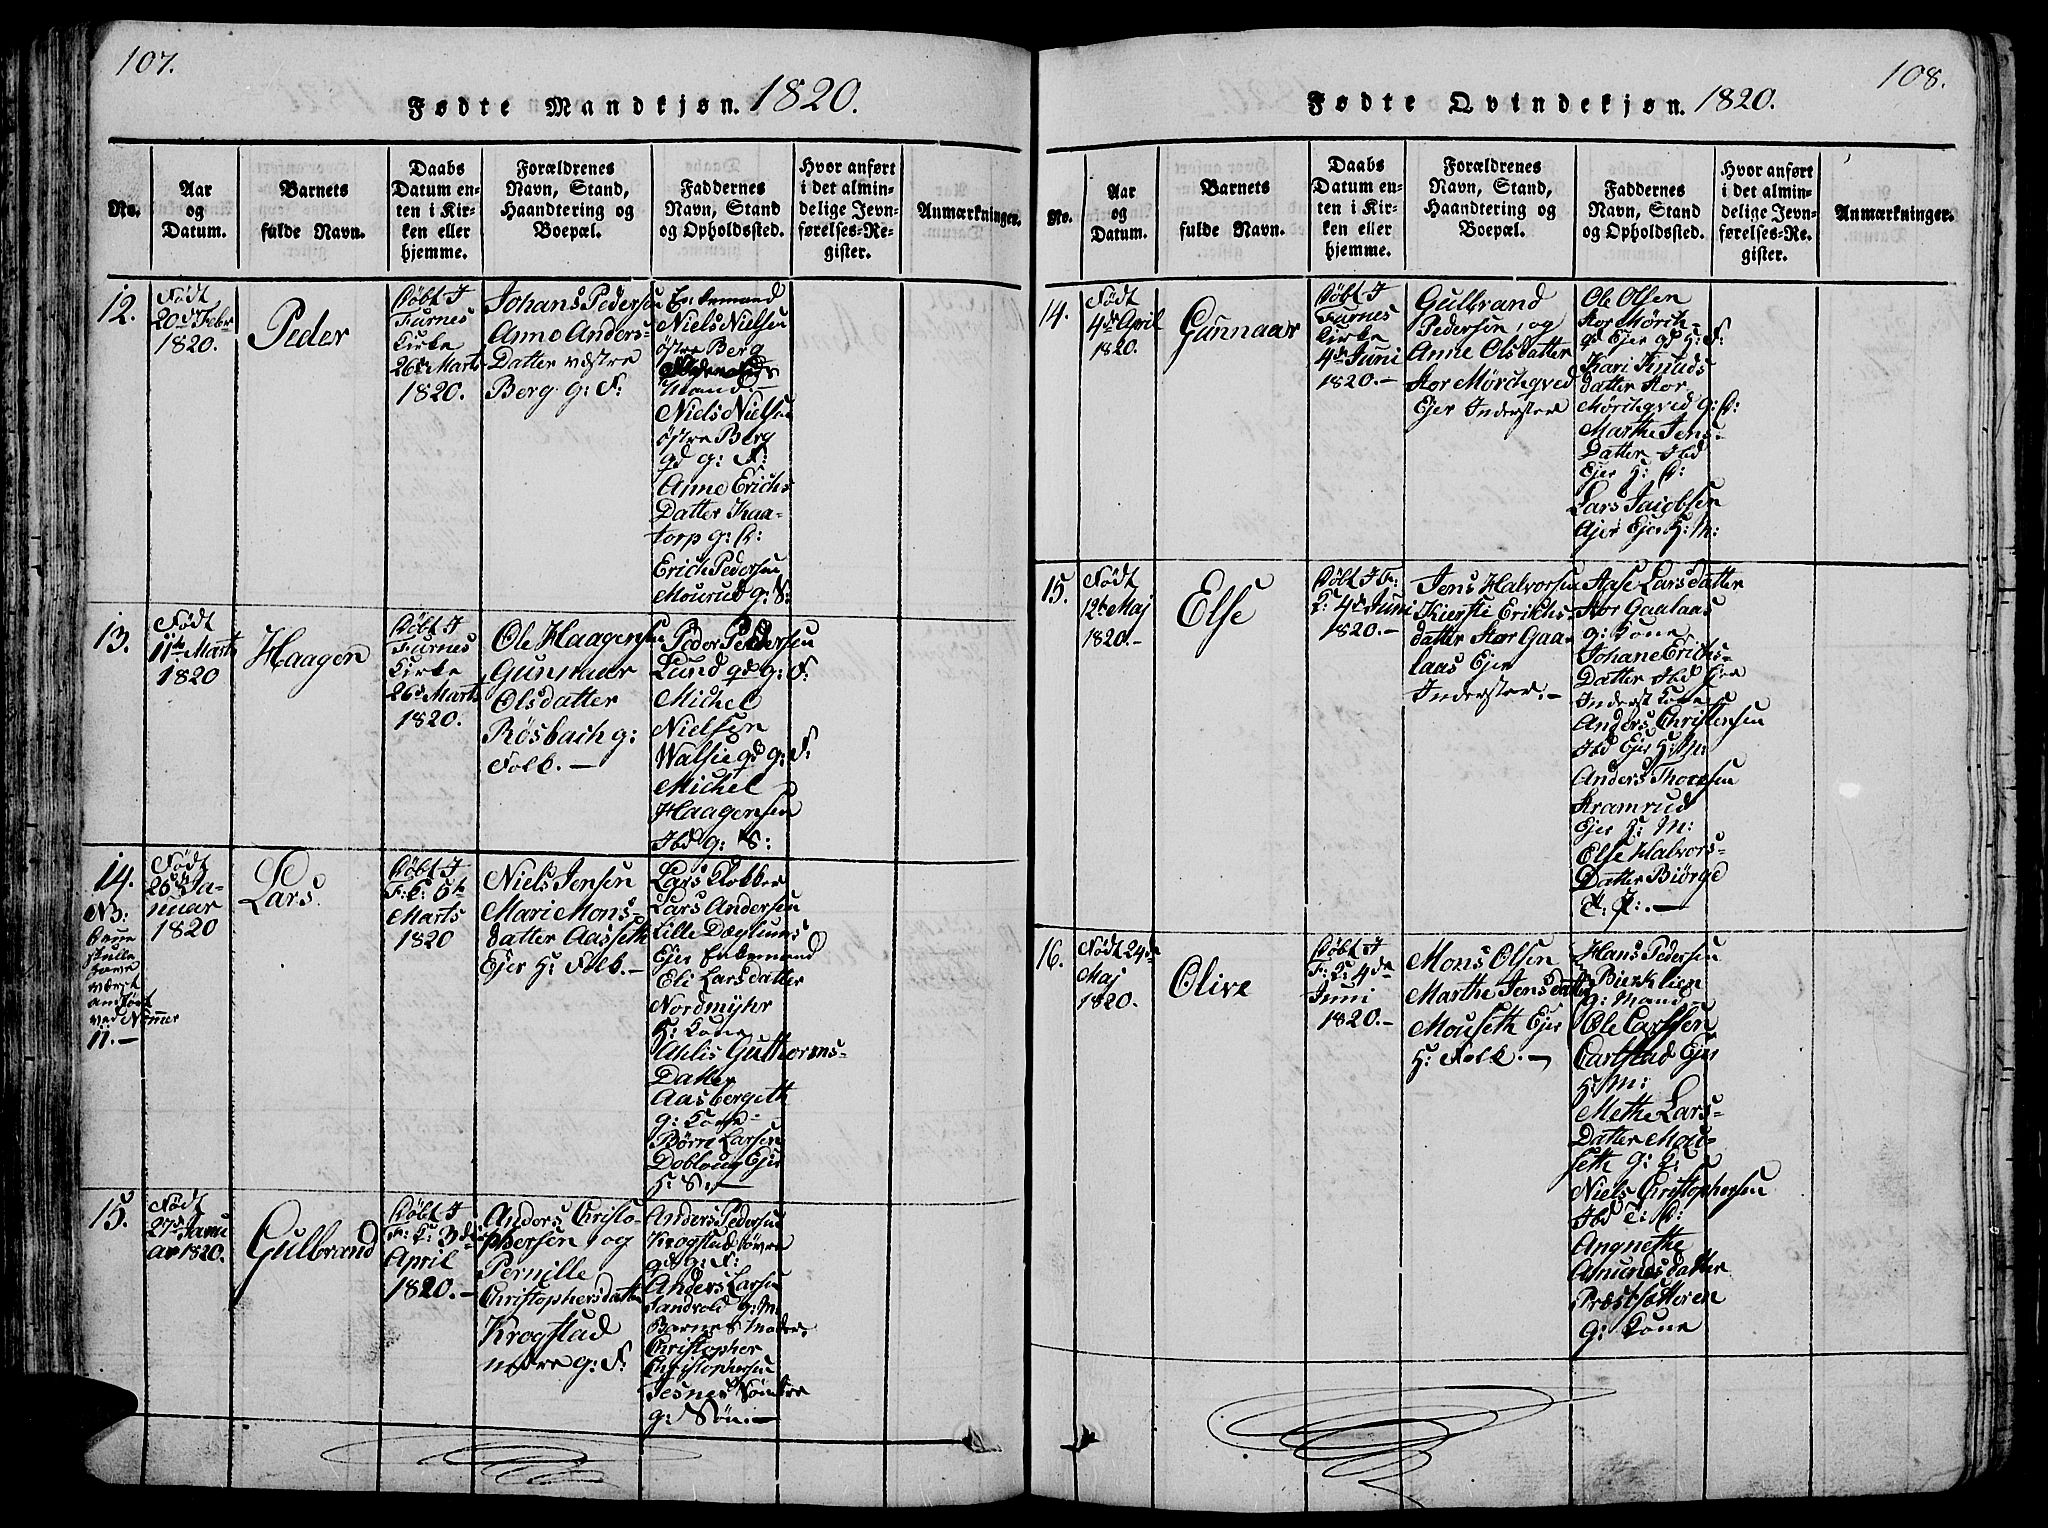 107.
Fødte Mandkjøn. 1820.
No.
Aar
og
Datum.
Barnets
fulde Navn.
Daabs
Datum en-
ten i Kir-
ken eller
hjemme.
Forældrenes
Navn, Stand,
Haandtering og
Boepæl.
Faddernes
Navn, Stand
og Opholdssted.
Hvor anført
i det almin-
delige Jevn-
førelses-Re-
gister.
Anmærkninger.
12.
Født
20de Febr
1820.
Peder
Døbt I
Furnes
Kirke
26de Marts
1820.
Johans Pedersen
Anne Anders-
Datter væstre
Berg g: F:
Enkemand
Niels Nielsen
østre Berg
Mand.-
Niels Nielsen
østre Berg
gd g: F:
Anne Erichs
Datter Kaa-
torp g: K:
Erich Pedersen
Mourud g: S:
13.
Født
11te Marts
1820
Haagen
Døbt I
Furnes
Kirke
26de Marts
1820.
Ole Haagensen
Gunnaar
Olsdatter
Røsbach g:
Folk. -
Peder Pedersen
Lund gd g: F:
Michel
Nielsen
Walsie gd g: F:
Michel
Haagensen
Ibd g: S:
14.
NB:
denne
skulle
have
værst
anført
ved Nummer
11. -
Født
26de Ja-
nuar
1820
Lars.
Døbt I
F: K: 5te
Marts
1820
Niels Jensen
Mari Mons-
datter Aasseth
Ejer H: Folk. -
Lars Klokker
Lars Andersen
Lille Dæglums
Ejer Enkemand
Eli Larsdatter
Nordmyhr
H: Kone
Ahlis Guthorms-
Datter
Aasbergeth
g: Kone
Børre Larsen
Dobloug Ejer
H: S: -
15.
Født
27de Janu
ar 1820.
Gulbrand
Døbt I
F: K: 3die
April
1820. -
Anders Christo-
phersen og
Pernille
Christophersdatter
Krogstad
nedre g: F:
Anders Pedersen
Krogstad søvre
gd g: F:
Anders Larsen
Sandvold g: M:
Barnets Moder,
Christopher
Christophersen
Jesnes Søndre
g: Søn. -
108.
Fødte Qvindekjøn. 1820.
No.
Aar
og
Datum.
Barnets
fulde Navn.
Daabs
Datum en-
ten i Kir-
ken eller
hjemme.
Forældrenes
Navn, Stand,
Haandtering og
Boepæl.
Faddernes
Navn, Stand
og Opholdssted.
Hvor anført
i det almin-
delige Jevn-
førelses-Re-
gister.
Anmærkninger.
14.
Født
4de April
1820.
Gunnaar
Døbt I
Furnes
Kirke
4de Juni
1820. -
Gulbrand
Pedersen, og
Anne Olsdatter
Stor Mørchqved
Ejer Inderster
Ole Olsen
Stor Mørch-
qd Ejer gd H: F:
Kari Knuds
datter Stor
Mørchqved g: K:
Marthe Jens-
Datter Ibd
Ejer H: K:
Lars Jacobsen
Ajer Ejer H: M:
15.
Født
12te Maj
1820. -
Else
Døbt I F:
K: 4de Juni
1820. -
Jens Halvorsen
Kiersti Erichs-
datter Stor Gaa-
laas Ejer
Inderster. -
Aase Larsdatter
Stor Gaalaas
g: Kone
Johane Erichs-
Datter Ibd Ejer
Inderst Kone
Anders Christensen
Ibd Ejer H: M:
Anders Thoresen
Kramrud
Ejer H: M:
Else Halvors-
Datter Biørge
16.
Født 24de
Maj
1820.
Olive
Døbt I
F: K: 4de
Juni
1820. -
Mons Olsen
Marthe Jensdatter
Mouseth Ejer
H: Folk. -
Hans Pedersen
Bierklien
g: Mand
Ole Carlssen
Carlstad Ejer
H: M:
Methe Lars-
Datter Mou-
seth g: K:
Niels Christophersen
Ibd
Angnethe
Amunds datter
Præstsætteren
g: Kone